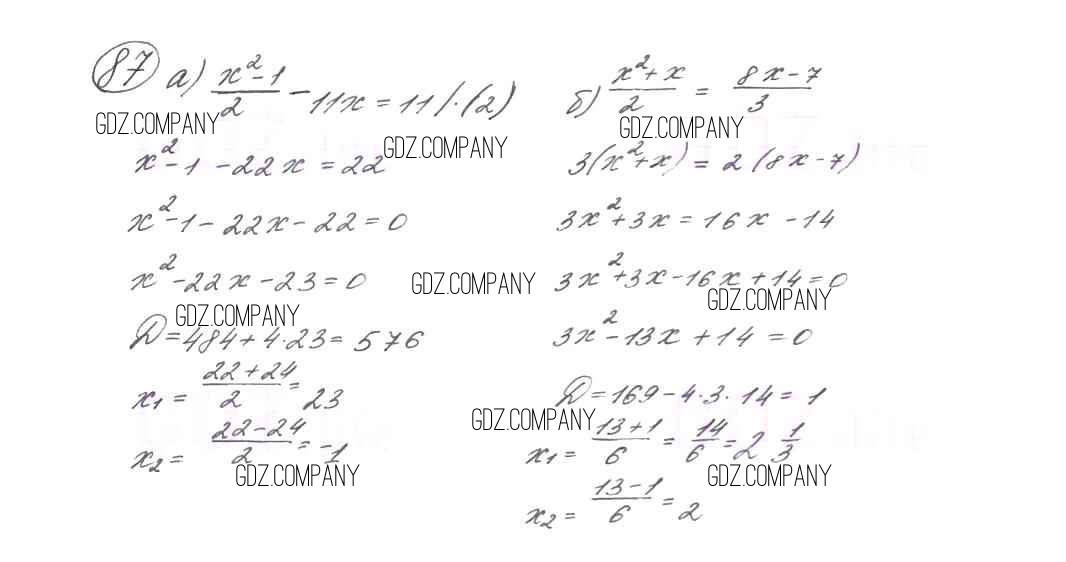 87 а) (x²-1)/2 - 11x = 11 /·(2)
GDZ.COMPANY
x²-1-22x=22
GDZ.COMPANY
x²-1-22x-22=0
x²-22x-23=0
GDZ.COMPANY
GDZ.COMPANY
D=484+4·23=576
x₁ = (22+24)/2 = 23
x₂ = (22-24)/2 = -1
GDZ.COMPANY
б) (x²+x)/2 = (8x-7)/3
GDZ.COMPANY
3(x²+x) = 2(8x-7)
3x²+3x=16x-14
3x²+3x-16x+14=0
GDZ.COMPANY
3x²-13x+14=0
D=169-4·3·14=1
GDZ.COMPANY
x₁ = (13+1)/6 = 14/6 = 2 1/3
GDZ.COMPANY
x₂ = (13-1)/6 = 2